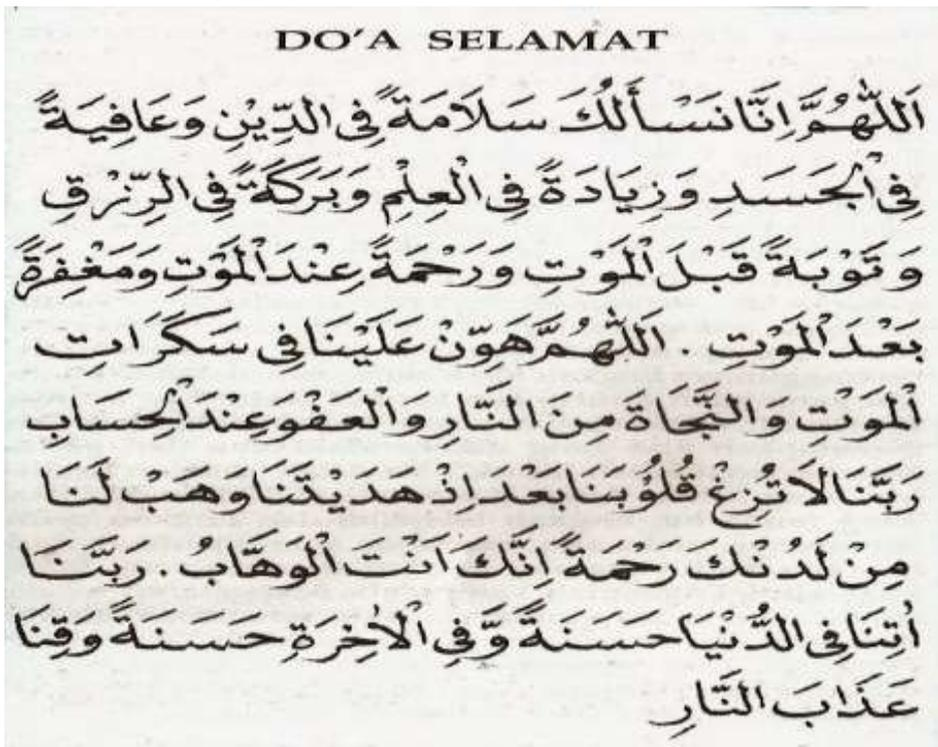 DO'A SELAMAT
اَللّٰهُمَّ اِنَّا نَسْأَلُكَ سَلَامَةً فِى الدِّيْنِ وَعَافِيَةً
فِى الْجَسَدِ وَزِيَادَةً فِى الْعِلْمِ وَبَرَكَةً فِى الرِّزْقِ
وَتَوْبَةً قَبْلَ الْمَوْتِ وَرَحْمَةً عِنْدَ الْمَوْتِ وَمَغْفِرَةً
بَعْدَ الْمَوْتِ . اَللّٰهُمَّ هَوِّنْ عَلَيْنَا فِى سَكَرَاتِ
الْمَوْتِ وَالنَّجَاةَ مِنَ النَّارِ وَالْعَفْوَ عِنْدَ الْحِسَابِ
رَبَّنَا لَا تُزِغْ قُلُوْبَنَا بَعْدَ اِذْ هَدَيْتَنَا وَهَبْ لَنَا
مِنْ لَدُنْكَ رَحْمَةً اِنَّكَ اَنْتَ الْوَهَّابُ . رَبَّنَا
اٰتِنَا فِى الدُّنْيَا حَسَنَةً وَّفِى الْاٰخِرَةِ حَسَنَةً وَقِنَا
عَذَابَ النَّارِ